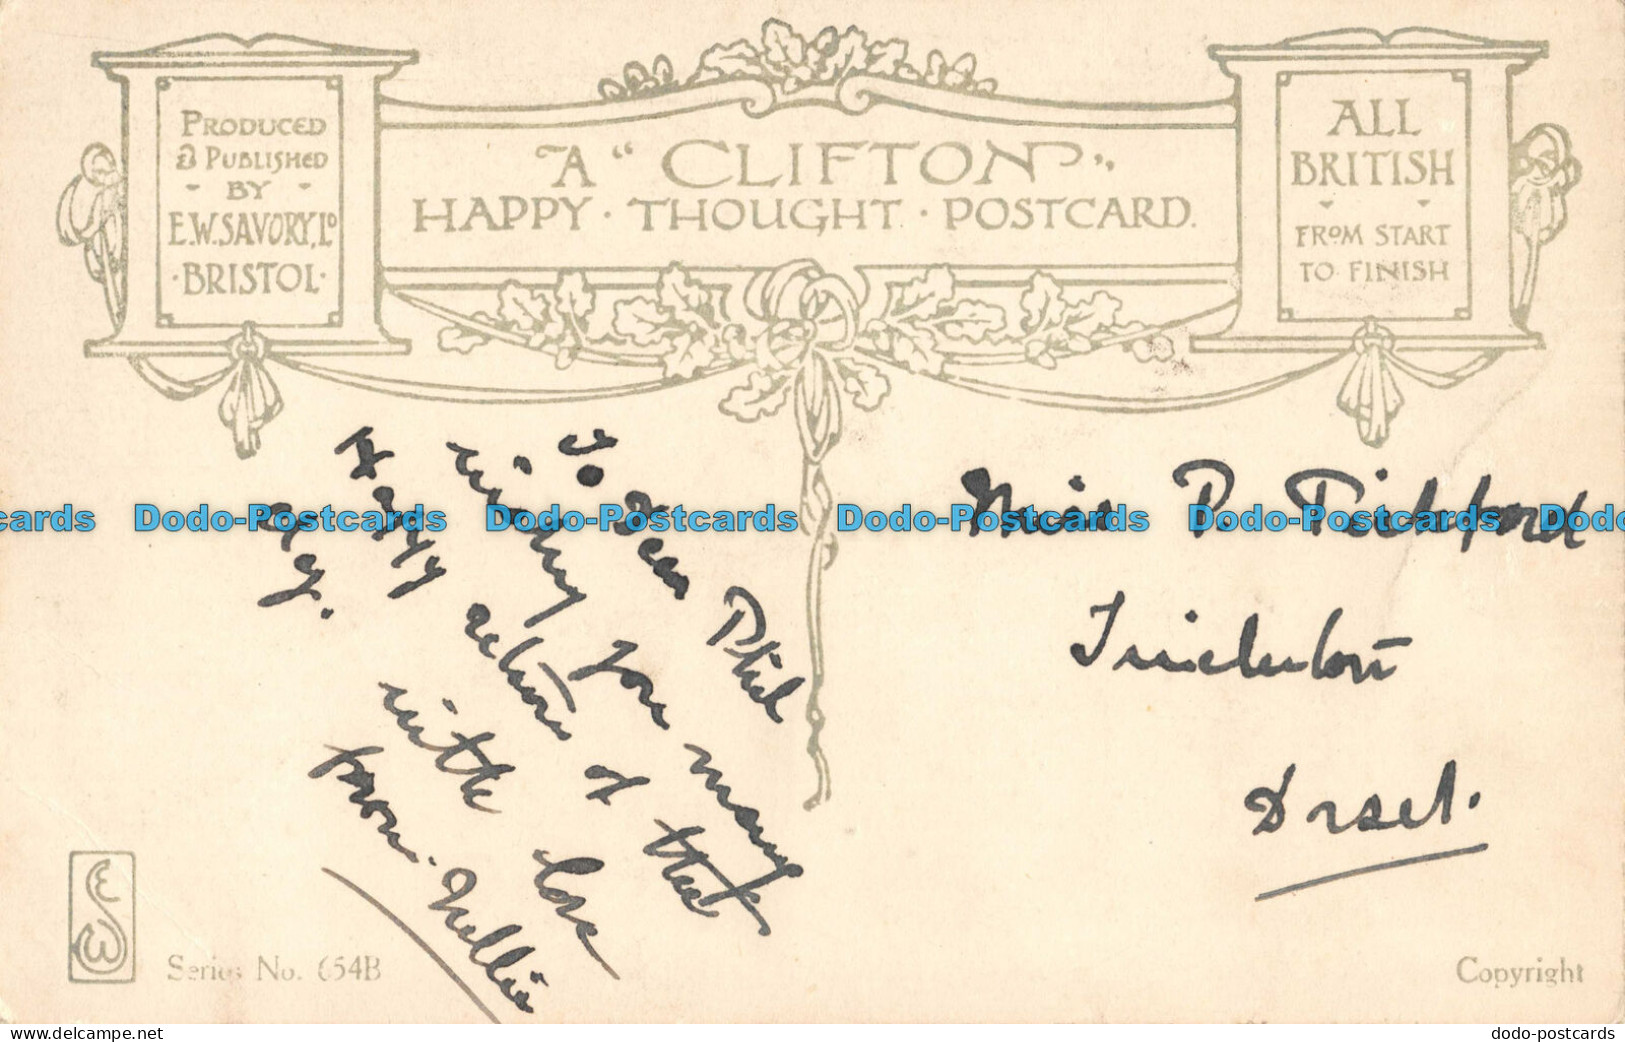 PRODUCED
& PUBLISHED
BY
E.W. SAVORY, LD
·BRISTOL·
A "CLIFTON"
HAPPY · THOUGHT · POSTCARD.
ALL
BRITISH
FROM START
TO FINISH
To Dear Phil
wishing you many
Happy return of that
day.
with love
from Nellie
Miss P. Pickford
Dorset.
Dodo-Postcards Dodo-Postcards Dodo-Postcards
Series No. 654B
Copyright
www.delcampe.net
dodo-postcards